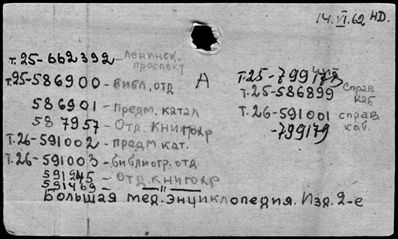 14.VI.62 НД.
т.25-662392 - Ленинск. проспект
т.25-586900 - библ. отд. А
586901 - предм. катал
587957 - Отд. книгохр
Т.26-591002 - предм кат.
Т.26-591003 - библиогр. отд.
591245 - отд. книгохр
591469 - —"—
Т.25-799178 чит
Т.25-586899 справ каб
Т.26-591001 справ. каб.
-799179
Большая мед. энциклопедия. Изд. 2-е